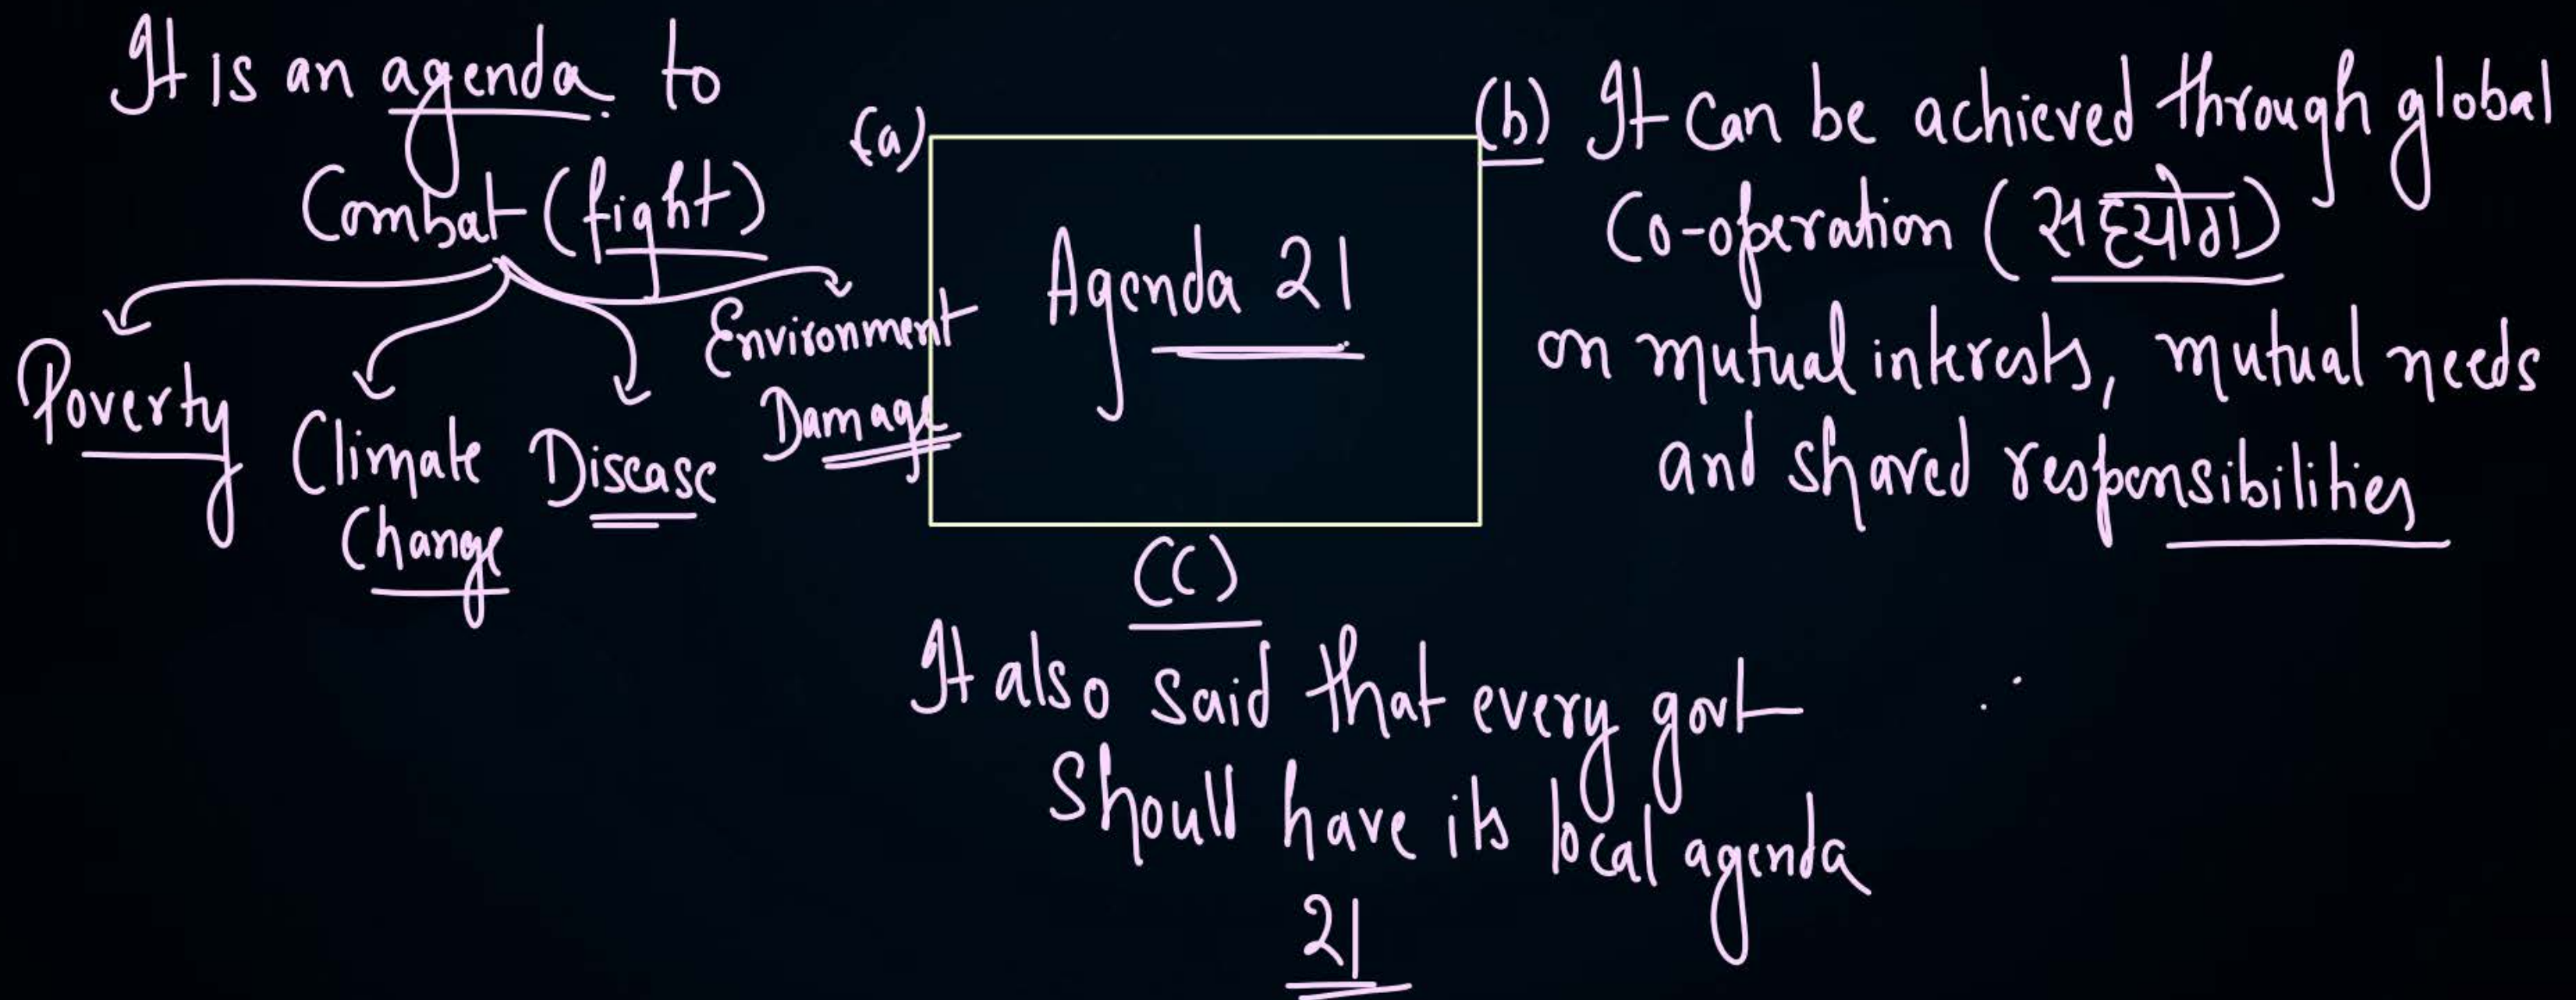 It is an agenda to
Combat (fight)
Poverty
Climate
Change
Disease
Environment
Damage
(a)
Agenda 21
(b) It Can be achieved through global
Co-operation (सहयोग)
on mutual interests, mutual needs
and shared responsibilities
(C)
It also said that every govt
Should have its local agenda
21